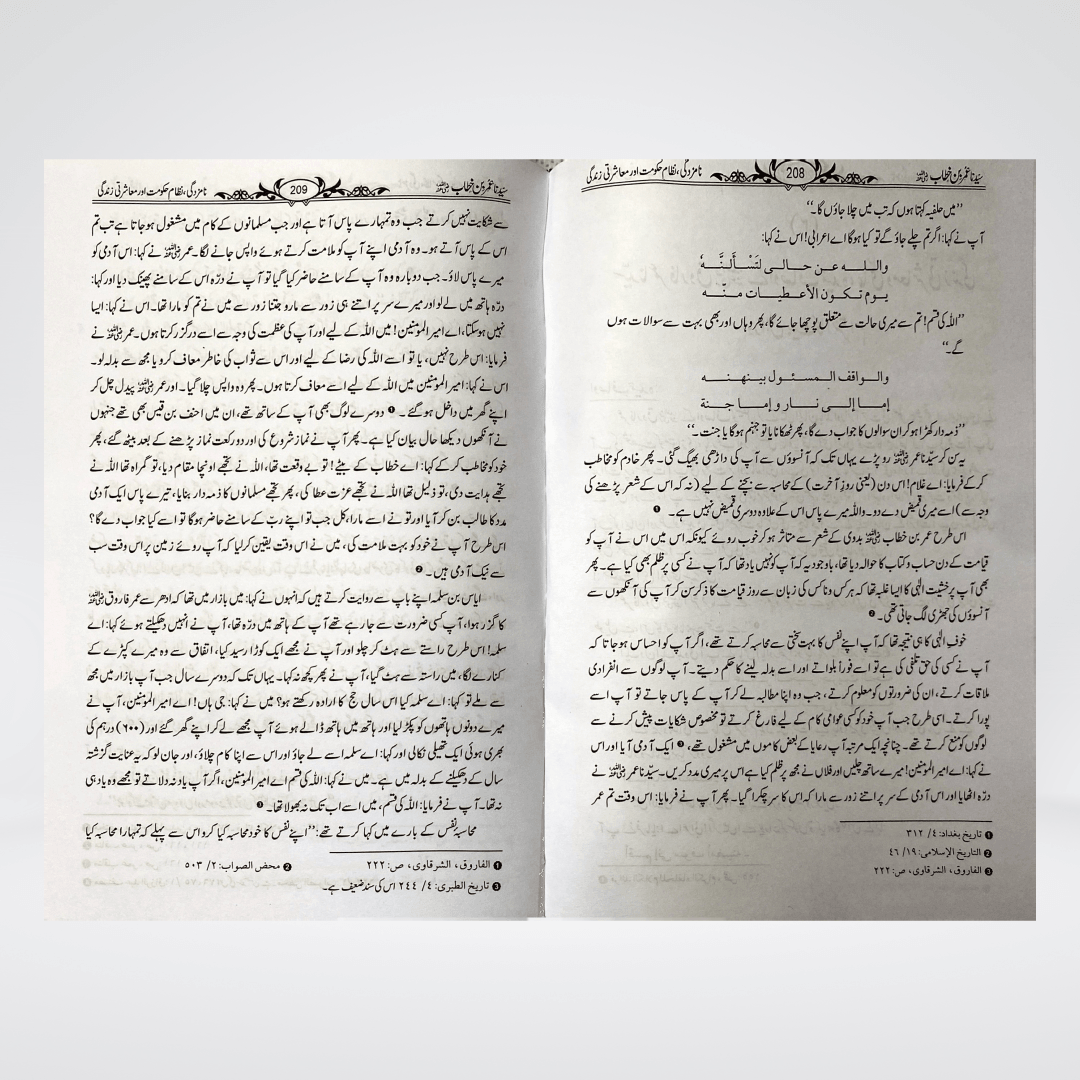 سیّدنا عمر بن خطاب رضی اللہ عنہ 208 نامزدگی، نظام حکومت اور معاشرتی زندگی
’’میں حلفیہ کہتا ہوں کہ تب میں چلا جاؤں گا۔‘‘
آپ نے کہا: اگر تم چلے جاؤ گے تو کیا ہوگا اے اعرابی! اس نے کہا:
واللہ عن حالی لَتَسْأَلَنَّہٗ
یوم تکون الأعطیات منّہ
’’اللہ کی قسم! تم سے میری حالت سے متعلق پوچھا جائے گا، پھر وہاں اور بھی بہت سے سوالات ہوں
گے۔‘‘
والواقف المسئول بینھنہ
إما إلی نار وإما جنة
’’ذمہ دار کھڑا ہو کر ان سوالوں کا جواب دے گا، پھر ٹھکانا یا تو جہنم ہوگا یا جنت۔‘‘
یہ سن کر سیّدنا عمر رضی اللہ عنہ رو پڑے یہاں تک کہ آنسوؤں سے آپ کی داڑھی بھیگ گئی۔ پھر خادم کو مخاطب
کر کے فرمایا: اے غلام! اس دن (یعنی روزِ آخرت) کے محاسبہ سے بچنے کے لیے (نہ کہ اس کے شعر پڑھنے کی
وجہ سے) اسے میری قمیض دے دو۔ واللہ میرے پاس اس کے علاوہ دوسری قمیض نہیں ہے۔ ❶
اس طرح عمر بن خطاب رضی اللہ عنہ بدوی کے شعر سے متاثر ہو کر خوب روئے کیونکہ اس میں اس نے آپ کو
قیامت کے دن حساب و کتاب کا حوالہ دیا تھا، باوجود یہ کہ آپ کو نہیں یاد تھا کہ آپ نے کسی پر ظلم بھی کیا ہے۔ پھر
بھی آپ پر خشیت الٰہی کا ایسا غلبہ تھا کہ ہر کس و ناکس کی زبان سے روز قیامت کا ذکر سن کر آپ کی آنکھوں سے
آنسوؤں کی جھڑی لگ جاتی تھی۔ ❷
خوفِ الٰہی کا ہی نتیجہ تھا کہ آپ اپنے نفس کا بہت سختی سے محاسبہ کرتے تھے، اگر آپ کو احساس ہو جاتا کہ
آپ نے کسی کی حق تلفی کی ہے تو اسے فوراً بلواتے اور اسے بدلہ لینے کا حکم دیتے۔ آپ لوگوں سے انفرادی
ملاقات کرتے، ان کی ضرورتوں کو معلوم کرتے، جب وہ اپنا مطالبہ لے کر آپ کے پاس جاتے تو آپ اسے
پورا کرتے۔ اسی طرح جب آپ خود کو کسی عوامی کام کے لیے فارغ کرتے تو مخصوص شکایات پیش کرنے سے
لوگوں کو منع کرتے تھے۔ چنانچہ ایک مرتبہ آپ رعایا کے بعض کاموں میں مشغول تھے، ❸ ایک آدمی آیا اور اس
نے کہا: اے امیر المومنین! میرے ساتھ چلیں اور فلاں نے مجھ پر ظلم کیا ہے اس پر میری مدد کریں۔ سیّدنا عمر رضی اللہ عنہ نے
درّہ اٹھایا اور اس آدمی کے سر پر اتنے زور سے مارا کہ اس کا سر چکرا گیا۔ پھر آپ نے فرمایا: اس وقت تم عمر
❶ تاریخ بغداد: ۴/ ۳۱۲
❷ التاریخ الإسلامی: ۱۹/ ۴۶
❸ الفاروق، الشرقاوی، ص: ۲۲۲
سیّدنا عمر بن خطاب رضی اللہ عنہ 209 نامزدگی، نظام حکومت اور معاشرتی زندگی
سے شکایت نہیں کرتے جب وہ تمہارے پاس آتا ہے اور جب مسلمانوں کے کام میں مشغول ہو جاتا ہے تب تم
اس کے پاس آتے ہو۔ وہ آدمی اپنے آپ کو ملامت کرتے ہوئے واپس جانے لگا۔ عمر رضی اللہ عنہ نے کہا: اس آدمی کو
میرے پاس لاؤ۔ جب دوبارہ وہ آپ کے سامنے حاضر کیا گیا تو آپ نے درّہ اس کے سامنے پھینک دیا اور کہا:
درّہ ہاتھ میں لے لو اور میرے سر پر اتنے ہی زور سے مارو جتنا زور سے میں نے تم کو مارا تھا۔ اس نے کہا: ایسا
نہیں ہو سکتا، اے امیر المومنین! میں اللہ کے لیے اور آپ کی عظمت کی وجہ سے اسے درگزر کرتا ہوں۔ عمر رضی اللہ عنہ نے
فرمایا: اس طرح نہیں، یا تو اسے اللہ کی رضا کے لیے اور اس سے ثواب کی خاطر معاف کر دو یا مجھ سے بدلہ لو۔
اس نے کہا: امیر المومنین میں اللہ کے لیے اسے معاف کرتا ہوں۔ پھر وہ واپس چلا گیا۔ اور عمر رضی اللہ عنہ پیدل چل کر
اپنے گھر میں داخل ہو گئے۔ ❶ دوسرے لوگ بھی آپ کے ساتھ تھے، ان میں احنف بن قیس بھی تھے جنہوں
نے آنکھوں دیکھا حال بیان کیا ہے۔ پھر آپ نے نماز شروع کی اور دو رکعت نماز پڑھنے کے بعد بیٹھ گئے، پھر
خود کو مخاطب کر کے کہا: اے خطاب کے بیٹے! تو بے وقعت تھا، اللہ نے تجھے اونچا مقام دیا، تو گمراہ تھا اللہ نے
تجھے ہدایت دی، تو ذلیل تھا اللہ نے تجھے عزت عطا کی، پھر تجھے مسلمانوں کا ذمہ دار بنایا، تیرے پاس ایک آدمی
مدد کا طالب بن کر آیا اور تو نے اسے مارا، کل جب تو اپنے ربّ کے سامنے حاضر ہوگا تو اسے کیا جواب دے گا؟
اس طرح آپ نے خود کو بہت ملامت کی، میں نے اس وقت یقین کر لیا کہ آپ روئے زمین پر اس وقت سب
سے نیک آدمی ہیں۔ ❷
ایاس بن سلمہ اپنے باپ سے روایت کرتے ہیں کہ انہوں نے کہا: میں بازار میں تھا کہ ادھر سے عمر فاروق رضی اللہ عنہ
کا گزر ہوا، آپ کسی ضرورت سے جا رہے تھے آپ کے ہاتھ میں درّہ تھا، آپ نے انہیں دھکیلتے ہوئے کہا: اے
سلمہ! اس طرح راستے سے ہٹ کر چلو اور آپ نے مجھے ایک کوڑا رسید کیا، اتفاق سے وہ میرے کپڑے کے
کنارے لگا، میں راستہ سے ہٹ گیا، آپ نے پھر کچھ نہ کہا۔ یہاں تک کہ دوسرے سال جب آپ بازار میں مجھ
سے ملے تو کہا: اے سلمہ کیا اس سال حج کا ارادہ رکھتے ہو؟ میں نے کہا: جی ہاں! اے امیر المومنین، آپ نے
میرے دونوں ہاتھوں کو پکڑ لیا اور ہاتھ میں ہاتھ ڈالے ہوئے آپ مجھے لے کر اپنے گھر گئے اور (۶۰۰) درہم کی
بھری ہوئی ایک تھیلی نکالی اور کہا: اے سلمہ اسے لے جاؤ اور اس سے اپنا کام چلاؤ، اور جان لو کہ یہ عنایت گزشتہ
سال کے دھکیلنے کے بدلہ میں ہے۔ میں نے کہا: اللہ کی قسم اے امیر المومنین، اگر آپ یاد نہ دلاتے تو مجھے وہ یاد ہی
نہ تھا۔ آپ نے فرمایا: اللہ کی قسم، میں اسے اب تک نہ بھولا تھا۔ ❸
محاسبہ نفس کے بارے میں کہا کرتے تھے: ’’اپنے نفس کا خود محاسبہ کیا کرو اس سے پہلے کہ تمہارا محاسبہ کیا
❶ الفاروق، الشرقاوی، ص: ۲۲۲ ❷ محض الصواب: ۲/ ۵۰۳
❸ تاریخ الطبری: ۴/ ۲۴۴ اس کی سند ضعیف ہے۔